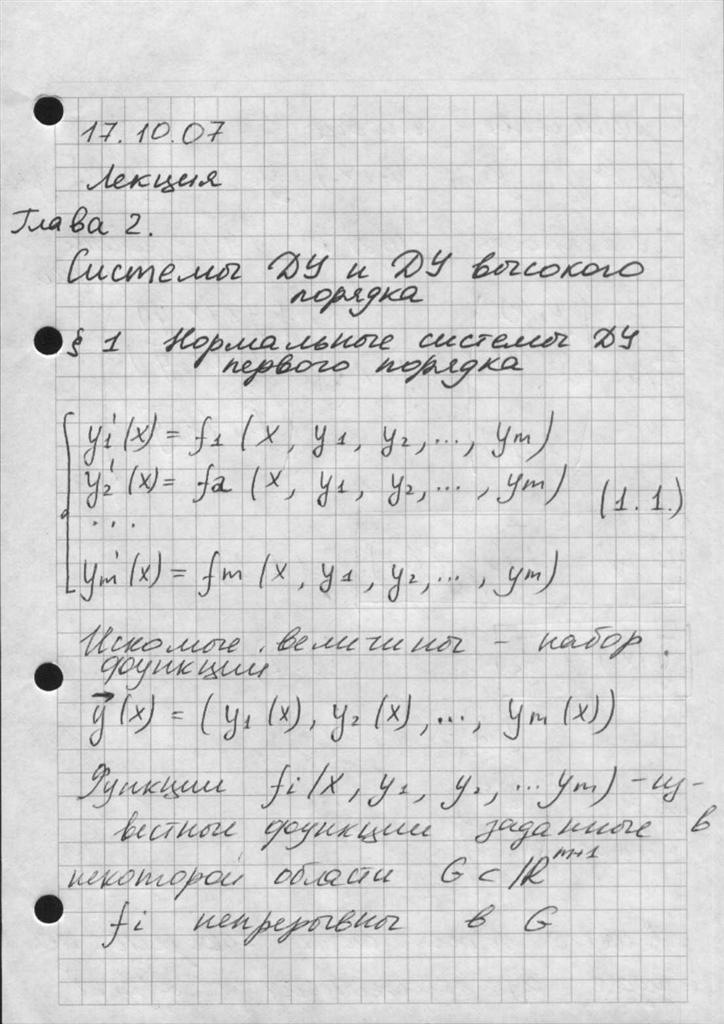 17.10.07
Лекция
Глава 2.
Системы ДУ и ДУ высокого
порядка
§ 1 Нормальные системы ДУ
первого порядка
y₁'(x) = f₁(x, y₁, y₂, ..., yₘ)
y₂'(x) = f₂(x, y₁, y₂, ..., yₘ) (1.1.)
...
yₘ'(x) = fₘ(x, y₁, y₂, ..., yₘ)
Искомые величины – набор
функции
y⃗(x) = (y₁(x), y₂(x), ..., yₘ(x))
Функции fᵢ(x, y₁, y₂, ... yₘ) – из-
вестные функции заданные в
некоторой области G ⊂ ℝᵐ⁺¹
fᵢ непрерывны в G